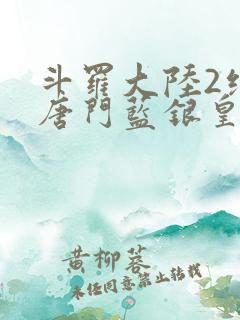 斗羅大陸2絕
唐門藍銀皇
黄柳蓉
未经同意禁止转载